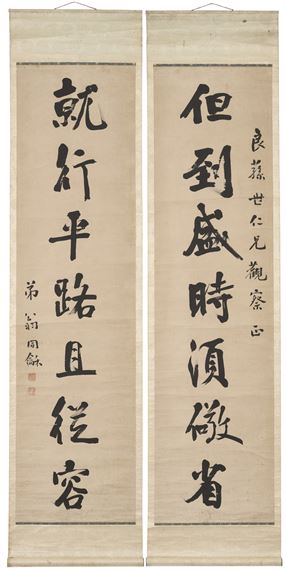 良蓀世仁兄觀察正
但到盛時須儆省
就行平路且從容
弟翁同龢